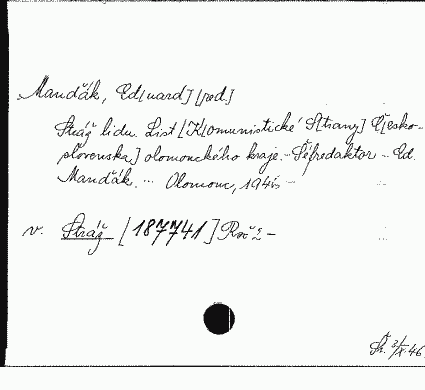 Mandřák, Ed[uard] [red.]
Stráž lidu. List [K[omunistické S[trany] Č[esko-
slovenska] olomouckého kraje. - Šéfredaktor - Ed.
Mandřák. ... Olomouc, 1945 -
v. Stráž [187741] Roč 2 -
Št. 3/X 46